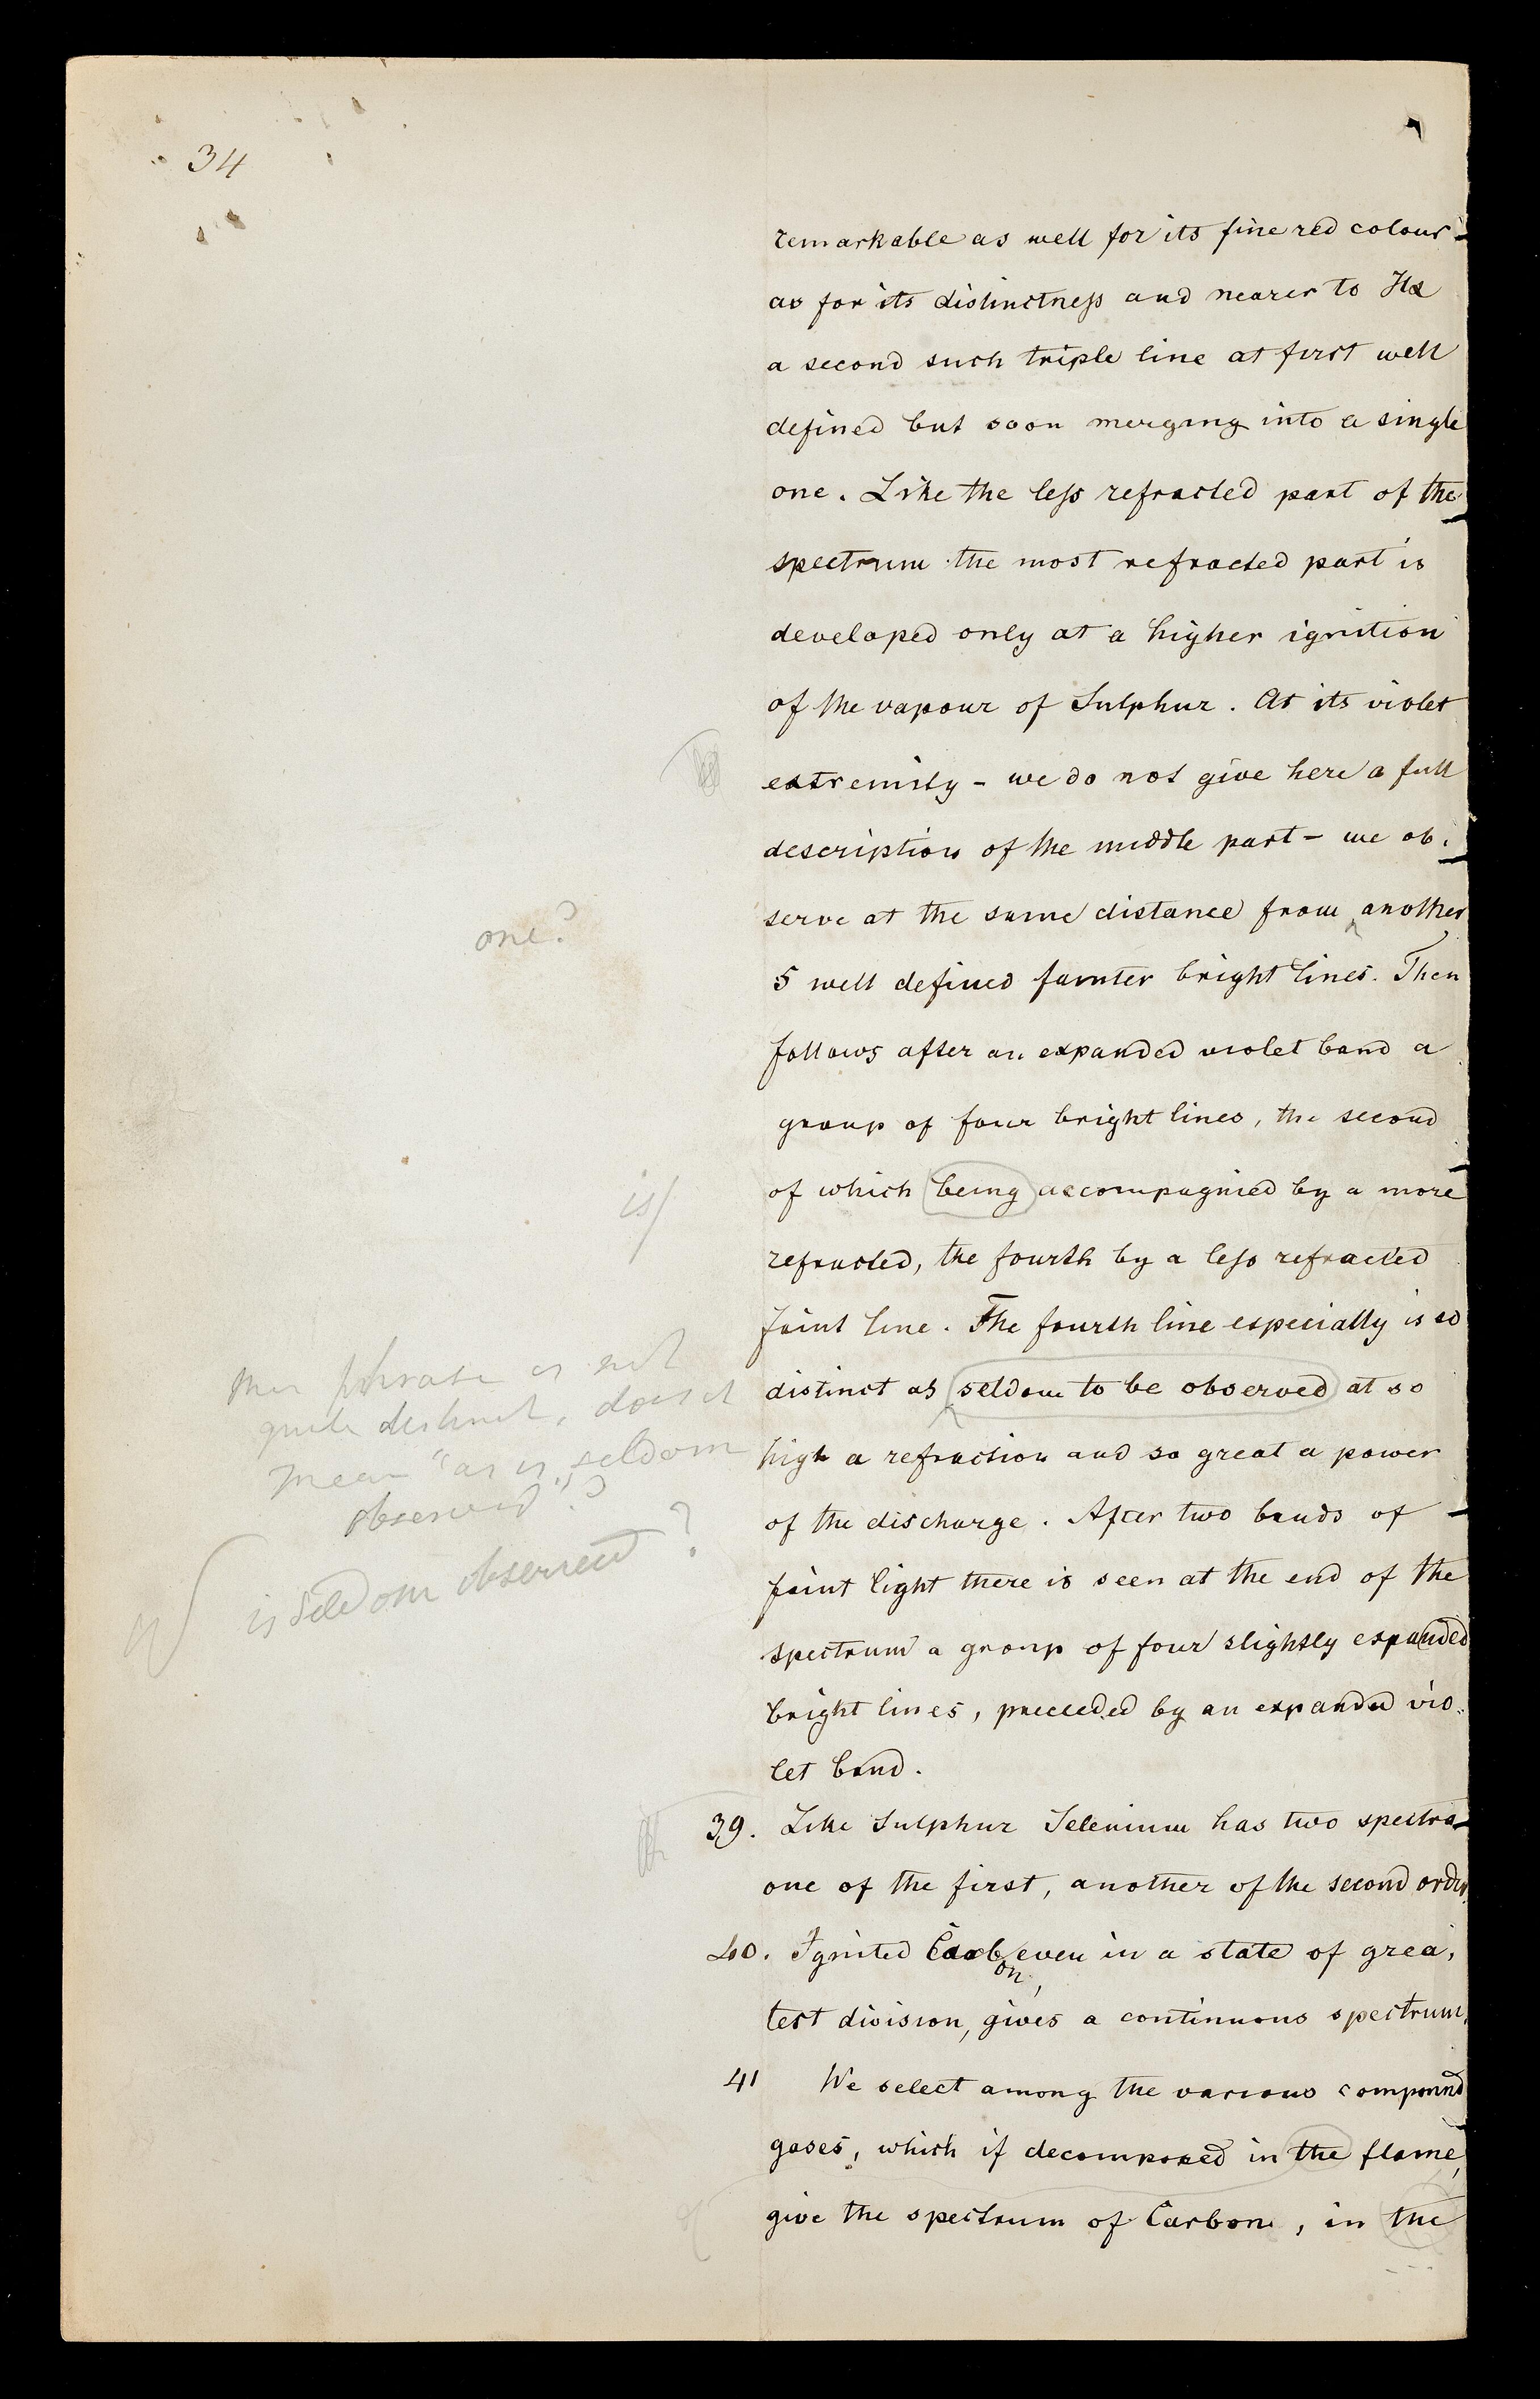 34
remarkable as well for its fine red colour
as for its distinctness and nearer to Hα
a second such triple line at first well
defined but soon merging into a single
one. Like the less refracted part of the
spectrum the most refracted part is
developed only at a higher ignition
of the vapour of Sulphur. At its violet
extremity - we do not give here a full
description of the middle part - we ob-
serve at the same distance from another
one?
5 well defined fainter bright lines. Then
follows after an expanded violet band a
group of four bright lines, the second
of which being accompagnied by a more
is/
refracted, the fourth by a less refracted
faint line. The fourth line especially is so
distinct as seldom to be observed at so
high a refraction and so great a power
of the discharge. After two bands of
faint light there is seen at the end of the
spectrum a group of four slightly expanded
bright lines, preceeded by an expanded vio-
let band.
phrase is not
quite distinct, does it
mean "as is seldom
observed"?
is seldom observed?
39. Like Sulphur Selenium has two spectra
one of the first, another of the second order.
40. Ignited Carbon, even in a state of grea-
test division, gives a continuous spectrum.
41 We select among the various compound
gases, which if decomposed in the flame,
give the spectrum of Carbon, in the